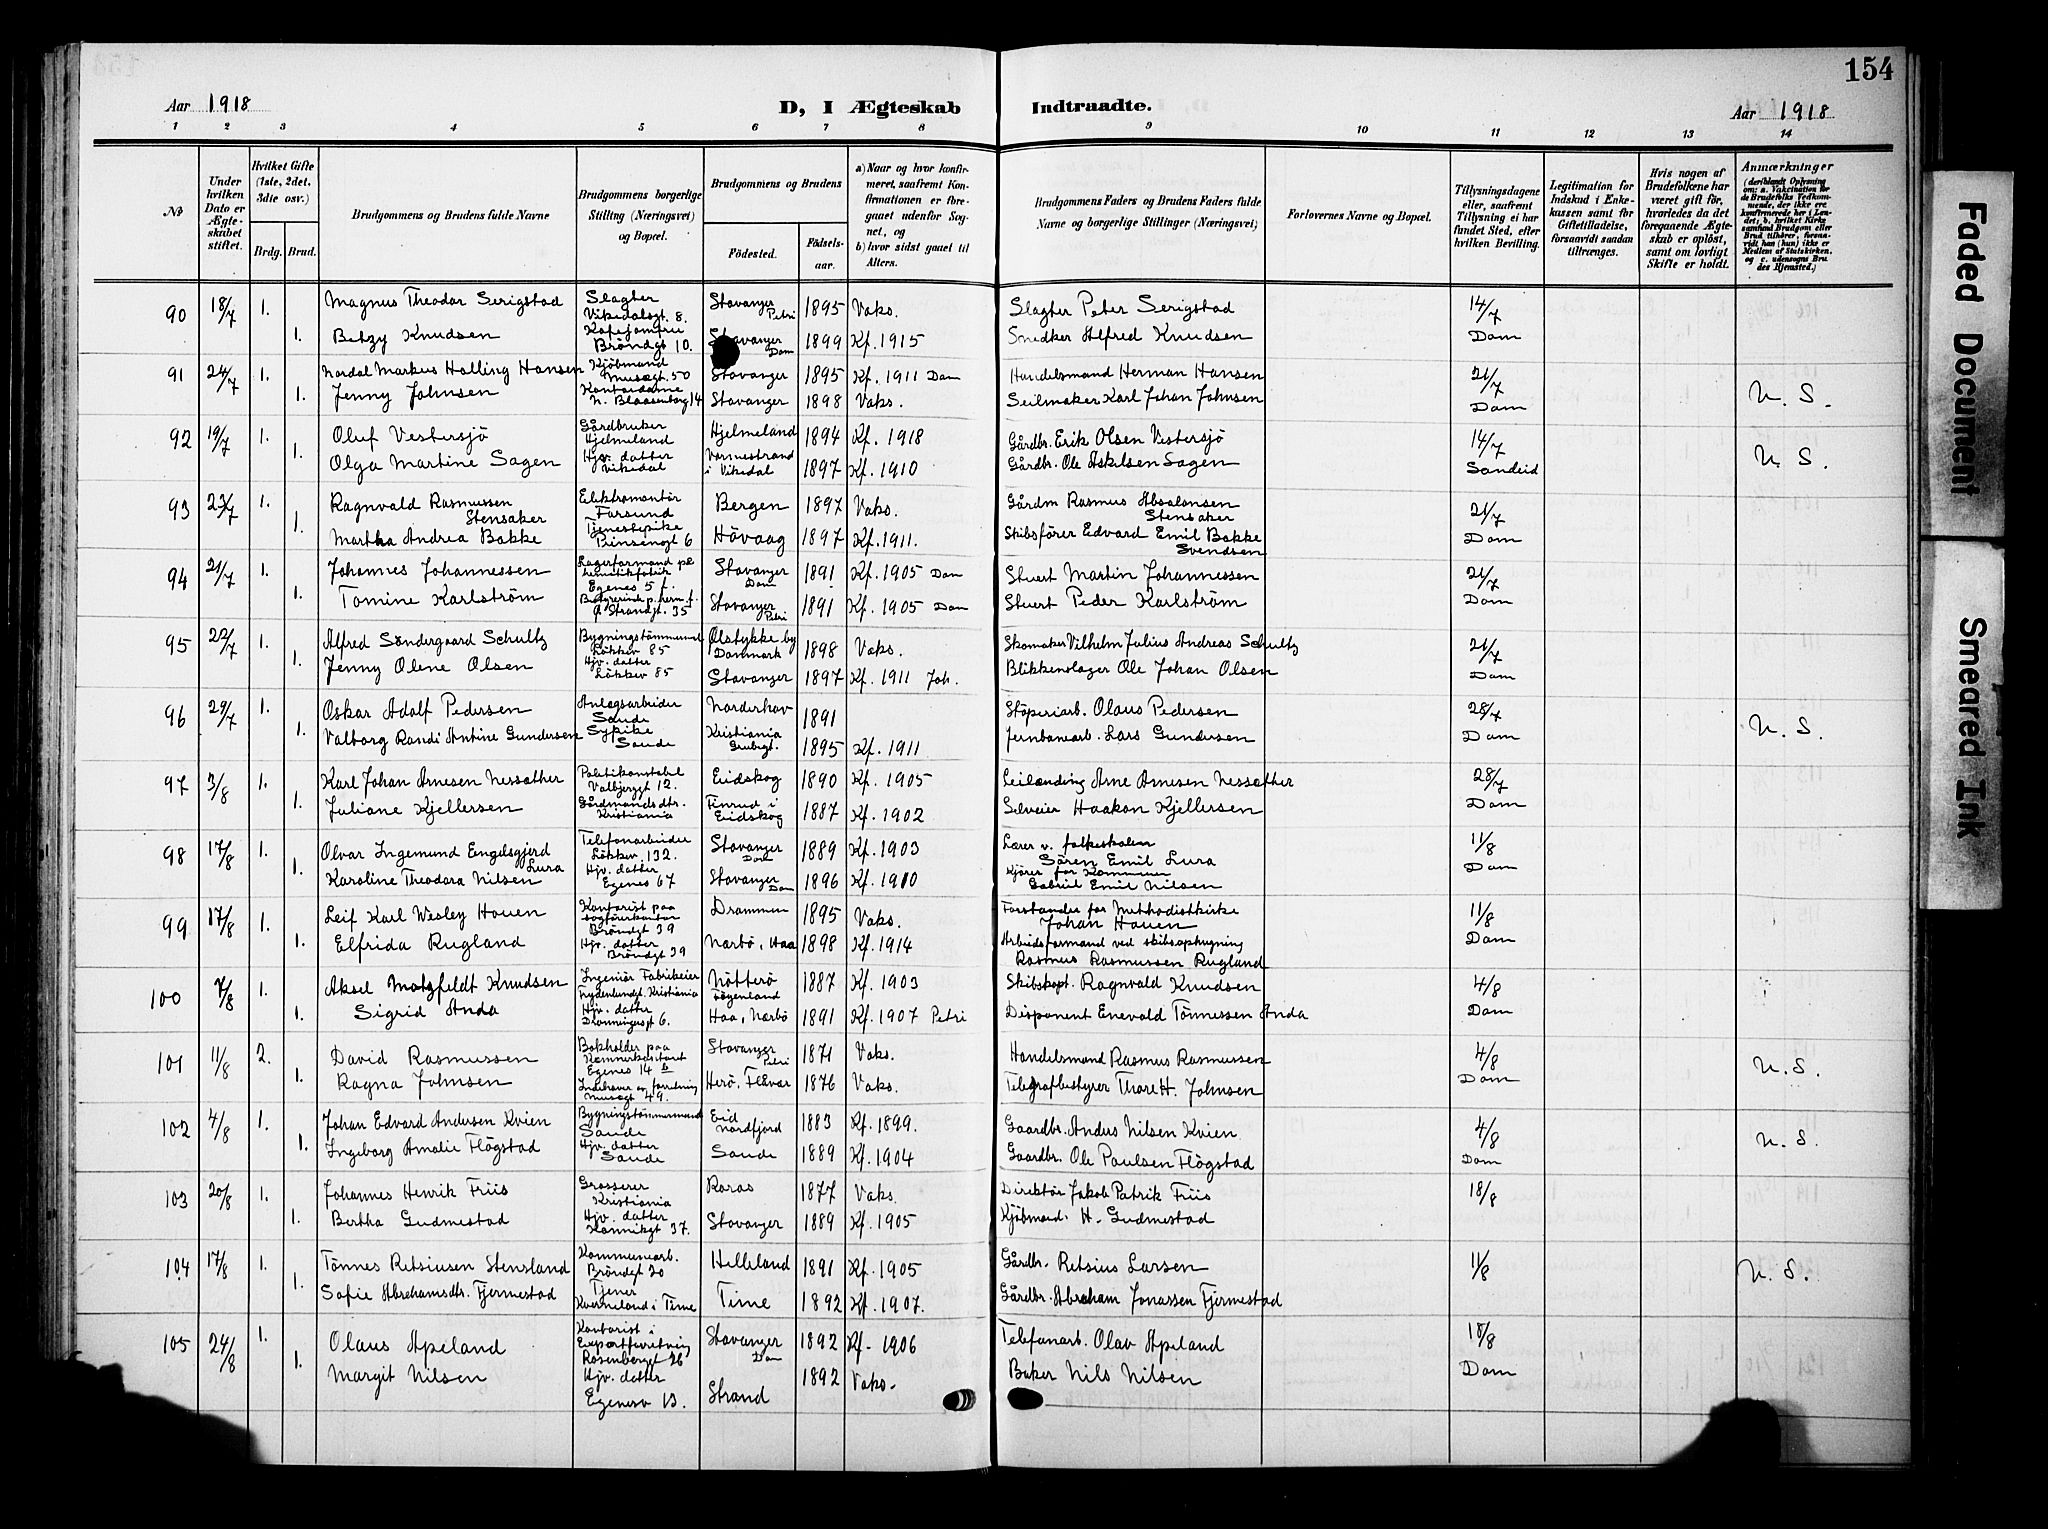 154
Aar 1918 D, I Ægteskab Indtraadte. Aar 1918
1 2 3 4 5 6 7 8 9 10 11 12 13 14
№
Under hvilken Dato er Ægteskabet stiftet.
Hvilket Gifte (1ste, 2det, 3die osv.)
Brdg. Brud.
Brudgommens og Brudens fulde Navne
Brudgommens borgerlige Stilling (Næringsvei) og Bopæl.
Brudgommens og Brudens
Fødested. Fødselsaar.
a) Naar og hvor konfirmeret, saafremt Konfirmationen er foregaaet udenfor Sognet, og
b) hvor sidst gaaet til Alters.
Brudgommens Faders og Brudens Faders fulde Navne og borgerlige Stillinger (Næringsvei)
Forlovernes Navne og Bopæl.
Tillysningsdagene eller, saafremt Tillysning ei har fundet Sted, efter hvilken Bevilling.
Legitimation for Indskud i Enkekassen samt for Giftetilladelse, forsaavidt saadan tiltrænges.
Hvis nogen af Brudefolkene har været gift før, hvorledes da det foregaaende Ægteskab er opløst, samt om lovligt Skifte er holdt.
Anmærkninger
90 18/7 1. Magnus Theodor Serigstad Slagter Vikedalsgt. 8. Stavanger Petri 1895 Vaks. Slagter Peter Serigstad 14/7
1. Betzy Knudsen Kafejomfru Brøndgt 10. Stavanger Dom 1899 Kf. 1915 Snedker Alfred Knudsen Dom
91 24/7 1. Nordal Markus Halling Hansen Kjøbmand Musægt. 50 Stavanger 1895 Kf. 1911 Dom Handelsmand Herman Hansen 21/7
1. Jenny Johnsen Kontordame N. Blaasenborg 14 Stavanger 1898 Vaks. Seilmaker Karl Johan Johnsen Dom N. S.
92 19/7 1. Oluf Vestersjö Gårdbruker Hjelmeland Hjelmeland 1894 Kf. 1918 Gårdbr. Erik Olsen Vestersjö 14/7
1. Olga Martine Sagen Hjv. datter Vikedal Vormestrand i Vikedal 1897 Kf. 1910 Gårdbr. Ole Askilsen Sagen Sandeid N. S.
93 23/7 1. Ragnvald Rasmussen Stensaker Elektromontör Farsund Bergen 1897 Vaks. Gårdm Rasmus Absalonsen Stensaker 21/7
1. Martha Andrea Bakke Tjenestepike Prinsengt 6 Hövaag 1897 Kf. 1911. Skibsförer Edvard Emil Bakke Svendsen Dom
94 21/7 1. Johannes Johannessen Lagerformand på hermetikfabrik Egenes 5 f. Stavanger Dom 1891 Kf. 1905 Dom Stuert Martin Johannessen 21/7
1. Tomine Karlström Ø Strandgt. 35 Stavanger Petri 1891 Kf. 1905 Dom Stuert Peder Karlström Dom
95 22/7 1. Alfred Söndergaard Schultz Bygningstömmermand Lökkev 85 Ølstykke by Danmark 1898 Vaks. Skomaker Vilhelm Julius Andreas Schultz 21/7
1. Jenny Olene Olsen Hjv. datter Lökkev 85 Stavanger 1897 Kf. 1911 Joh. Blikkenslager Ole Johan Olsen Dom
96 29/7 1. Oskar Adolf Pedersen Anlegsarbeider Sande Norderhov 1891 Stöperiarb. Olaus Pedersen 28/7
1. Valborg Randi Antine Gundersen Sypike Sande Kristiania Grubegt. 1895 Kf. 1911 Jernbanearb. Lars Gundersen Dom N. S.
97 3/8 1. Karl Johan Arnesen Nessæther Politikonstabel Valbjergt 12. Eidskog 1890 Kf. 1905 Leilænding Arne Arnesen Nessæther 28/7
1. Juliane Kjellersen Gårdmandsdtr. Kristiania Finrud i Eidskog 1887 Kf. 1902 Selveier Haakon Kjellersen Dom
98 17/8 1. Olvar Ingemund Engelsgjerd Lura Telefonarbeider Lökkev. 132. Stavanger Dom 1889 Kf. 1903 Lærer v. folkeskolen Sören Emil Lura 11/8
1. Karoline Theodora Nilsen Hjv. datter Egenes 67 Stavanger Dom 1896 Kf. 1910 Kjörer for Kommunen Gabriel Emil Nilsen Dom
99 17/8 1. Leif Karl Wesley Houen Kontorist paa Brøndgt 39 Drammen 1895 Vaks. Forstander for Methodistkirke Johan Houen 11/8
1. Elfrida Rugland Hjv. datter Brøndgt 39 Nærbö, Haa 1898 Kf. 1914 Arbeidsformand ved skibsophugning Rasmus Rasmussen Rugland Dom
100 7/8 1. Aksel Motzfeldt Knudsen Ingeniör Fabrikeier Frydenlundgt. Kristiania Nötterö 1887 Kf. 1903 Skibskapt. Ragnvald Knudsen 4/8
1. Sigrid Anda Hjv. datter Dronningensgt 6. Haa, Nærbö 1891 Kf. 1907 Petri Disponent Enevald Tönnessen Anda Dom
101 11/8 2. David Rasmussen Bokholder paa Kæmnerkontoret Egenes 14 b Stavanger Petri 1871 Vaks. Handelsmand Rasmus Rasmussen 4/8
1. Ragna Johnsen Indehaver av forretning Musægt 49. Herö, Flavær 1876 Vaks. Telegrafbestyrer Thore H. Johnsen Dom N. S.
102 4/8 1. Johan Edvard Andersen Kvien Bygningstömmermand Sande Eid Nordfjord 1883 Kf. 1899. Gaardbr. Anders Nilsen Kvien 4/8
1. Ingeborg Amalie Flögstad Hjv. datter Sande Sande 1889 Kf. 1904 Gaardbr. Ole Paulsen Flögstad Dom N. S.
103 20/8 1. Johannes Henrik Friis Grosserer Kristiania Röros 1877 Vaks. Direktör Jakob Patrik Friis 18/8
1. Bertha Gudmestad Hjv. datter Kannikgt 37. Stavanger 1889 Kf. 1905 Kjöbmand. H. Gudmestad
104 17/8 1. Tönnes Retsiusen Stensland Kommunearb. Bröndgt 20 Helleland 1891 Kf. 1905 Gårdbr. Retsius Larsen 11/8
1. Sofie Abrahamsdtr. Fjermestad Tjener Kverneland i Time Time 1892 Kf. 1907. Gårdbr. Abraham Jonassen Fjermestad N. S.
105 24/8 1. Olaus Apeland Kontorist i Exportforretning Rosenberggt 26 Stavanger Dom 1892 Kf. 1906 Telefonarb. Olav Apeland 18/8
1. Margit Nilsen Hjv. datter Egenesv 13. Strand 1892 Vaks. Baker Nils Nilsen Dom
Faded Document
Smeared Ink